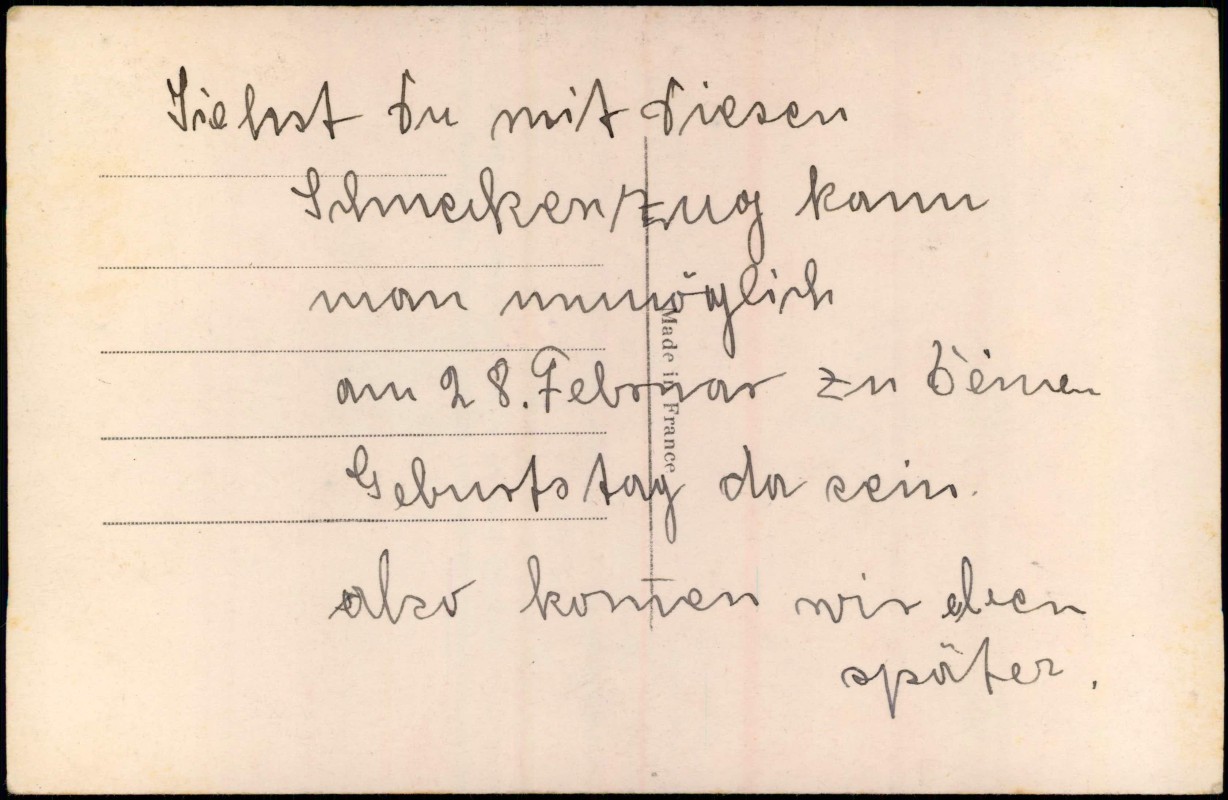 Siehst Du mit diesen
Schneckenzug kann
man unmöglich
am 28. Februar zu Deinen
Geburtstag da sein.
also kom̄en wir eben
später.
Made in France